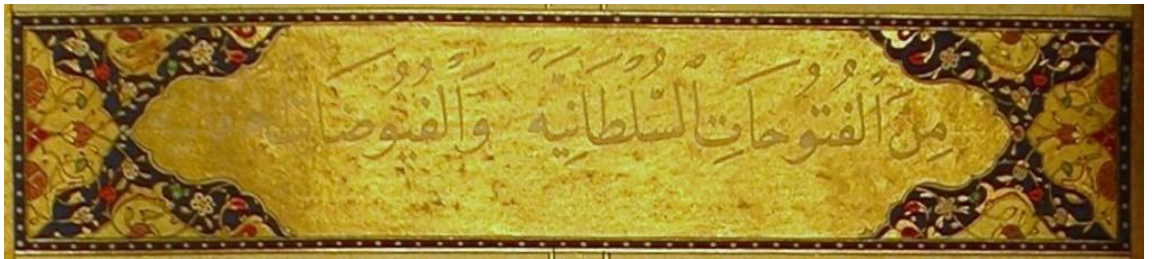 مِنَ الْفُتُوحَاتِ السُّلْطَانِيَّه وَالْفُيُوضَات